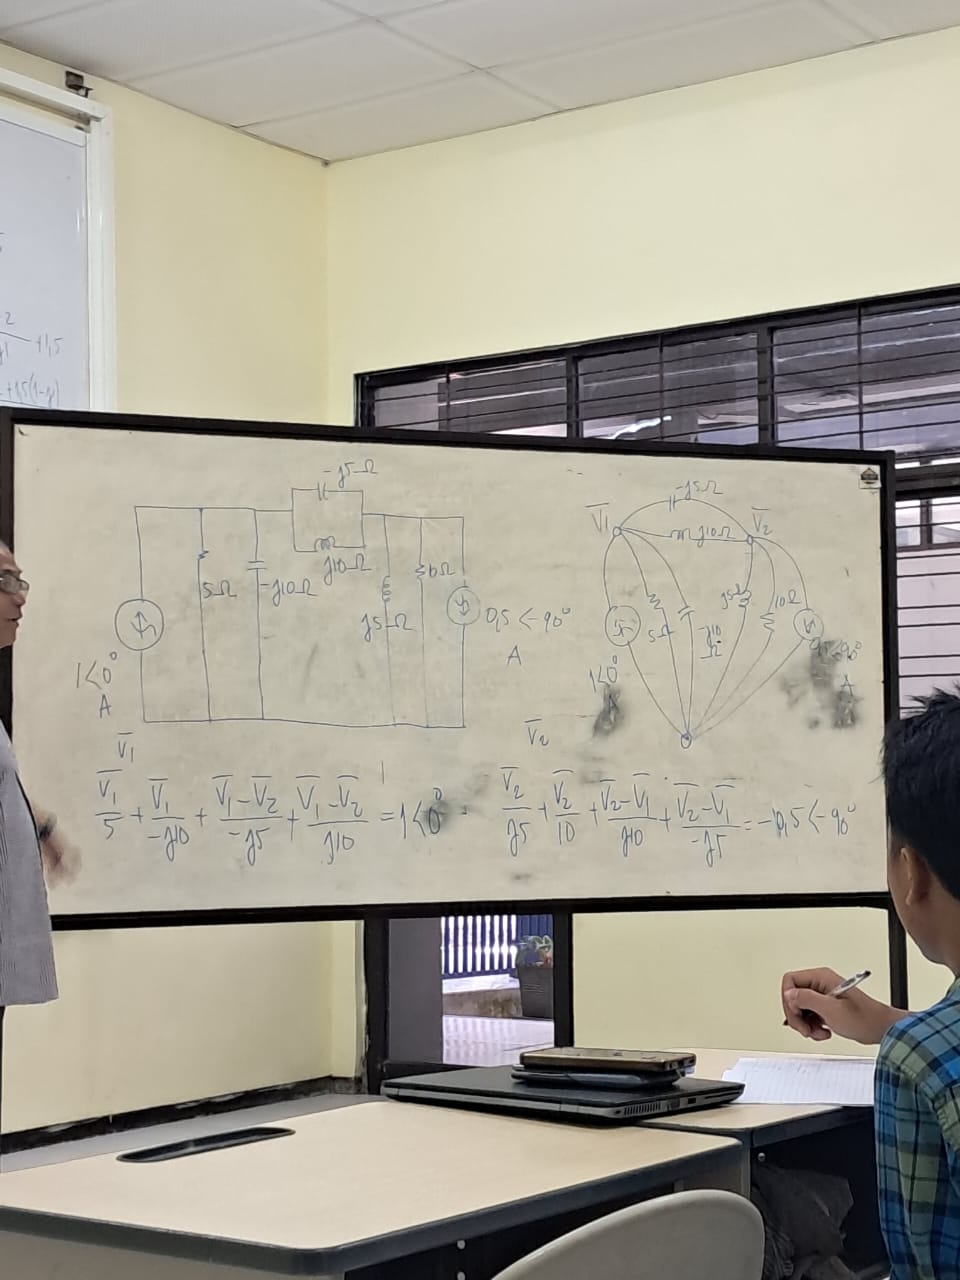 -2
+1,5
+1,5(1-j)
-j5Ω
j10Ω
5Ω
-j10Ω
j5Ω
10Ω
0,5<-90°
A
1<0°
A
-j5Ω
V̅1
j10Ω
V̅2
5Ω
-j10
Ω
j5Ω
10Ω
1<0°
A
A
V̅1
V̅1/5 + V̅1/-j10 + V̅1-V̅2/-j5 + V̅1-V̅2/j10 = 1<0°
V̅2
V̅2/j5 + V̅2/10 + V̅2-V̅1/j10 + V̅2-V̅1/-j5 = -0,5<-90°